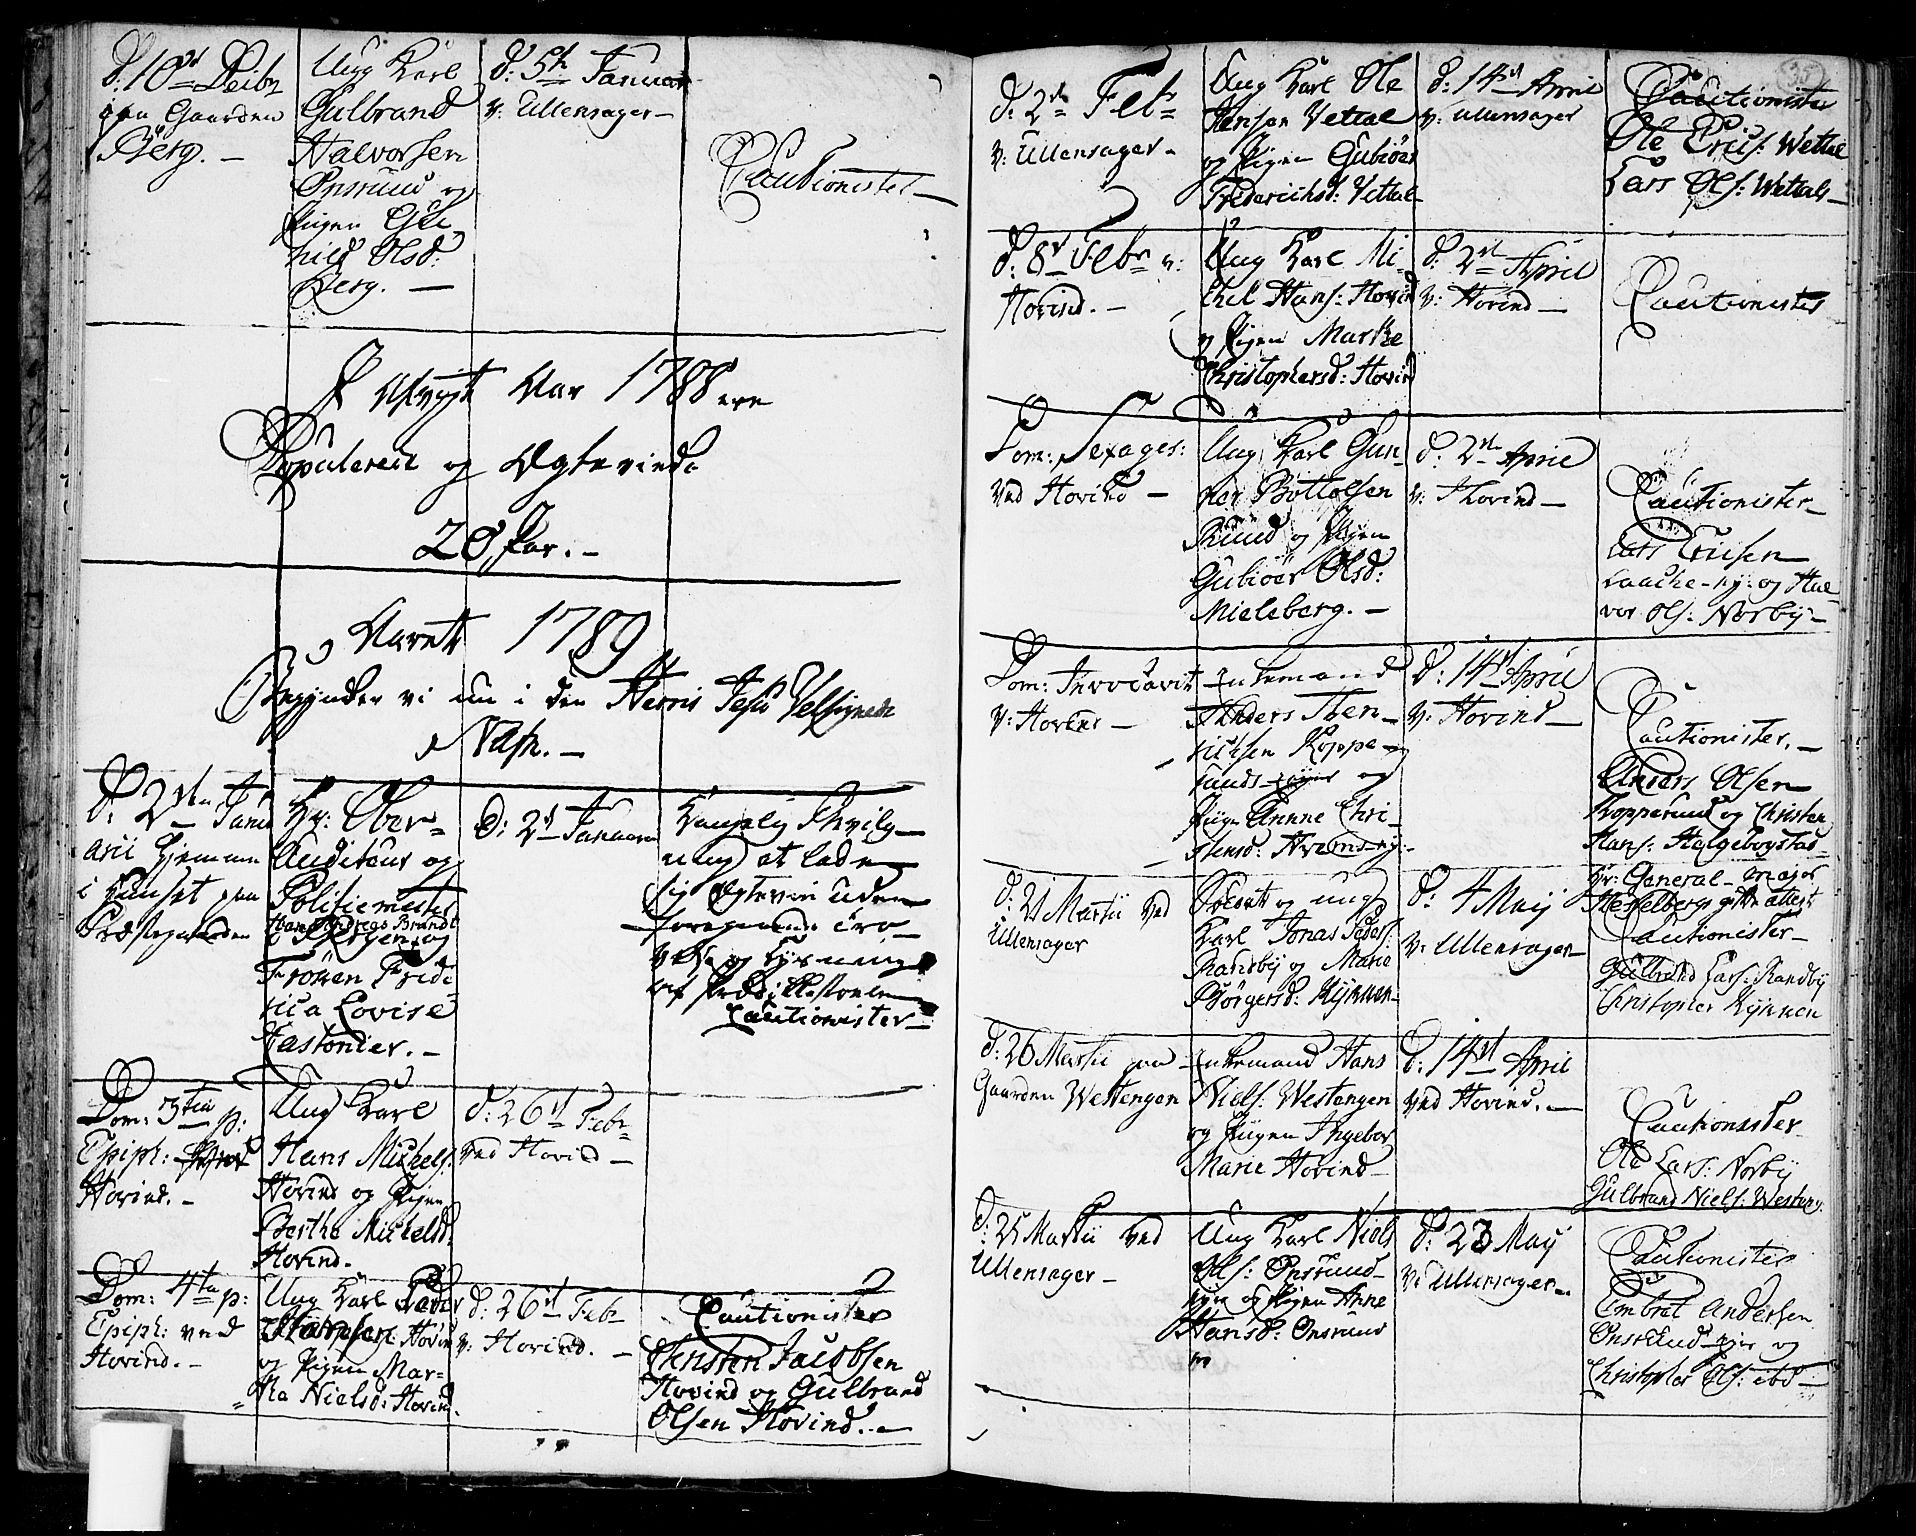 d: 10d Decbr
paa Gaarden
Berg. –
Ung Karl
Gulbrand
Halvorsen
Onsrud og
Pigen Gu-
nild Olsd:
Berg. –
d: 5te Januar
v: Ullensager –
Cautionister –
I Afvigt Aar 1788 ere
Copulerede og Ægteviede
20 Par. –
Aaret 1789
Begynder vi nu i den Herris Jesu Velsignede
Nafn. –
d: 2den Janu
arii hjemme
i Huuset paa
Præstegaarden
Hr: Ober-
Auditeur og
Politiemester
Hans Andreas Brandt
Bergen, og
Fröken Fride
rica Lovise
Hastonier. –
d: 2d Januari
Kongelig Tilla-
ung at lade
sig Ægtevie uden
foregaaende Tro-
velse og Lysning
af Prædikestolen
Cautionister –
Dom: 3tia p:
Epiph:
Hovind. –
Ung Karl
Hans Michels:
Hovind og Pigen
Berthe Michelsd:
Hovind. –
d: 26d Febr
ved Hovind –
Dom: 4ta p:
Epiph: ved
Hovind. –
Ung Karl Peder
Hovind
og Pigen Mar-
tha Nielsd: Hovind.
d: 26d Febr
v: Hovind. –
Cautionister
Christen Jacobsen
Hovind og Gulbrand
Olsen Hovind. –
35
d: 2de Febr
v: Ullensager –
Ung Karl Ole
Hansen Vettal
og Pigen Gubiör
Frederichsd: Vettal –
d: 14d April
v: Ullensager
Cautionister
Ole Erics: Wettal
Lars Ols: Wettals –
d: 8d Febr v:
Hovind. –
Ung Karl Mi-
chel Hans: Hovind
og Pigen Marthe
Christophersd: Hovind
d: 2d April
v: Hovind –
Cautionister
Dom: Sexages:
ved Hovind –
Ung Karl Gun-
ner Bottolfsen
Ruud og Pigen
Gubiöer Olsd:
Mieleberg. –
d: 2d April
v: Hovind –
Cautionister –
Lars Ericsen
Laache-ny: og Hal-
vor Ols: Norby –
Dom: Invocavit
v: Hovind –
Enkemand
Anders Hen-
richsen Koppe-
runds-ejer og
Pigen Annne Chri-
stensd: Hvamsny: –
d: 14d April
v: Hovind –
Cautionister. –
Anders Olsen
Kopperud og Christen
Hans: Halgebøystad –
d: 21 Martii ved
Ullensager
Soldat og ung
Karl Jonas Peders:
Randby og Marie
Börgersd: Kynnen –
d: 4 Maij
v: Ullensager –
Hr: General-major
Hesselberg gitte attest
Cautionister –
Gulbrand Lars: Randby
Christopher Kynnen
d: 26 Martii paa
Gaarden Westengen
Enkemand Hans
Niels: Westengen
og Pigen Ingebor
Marie Hovind –
d: 14d April
ved Hovind. –
Cautionister
Ole Lars: Norby
Gulbrand Niels: Westeng
d: 25 Martii ved
Ullensager –
Ung Karl Niels
Ols: Onsrund-
ejer og Pigen Anne
Hansd: Onsrund
d: 23 Maij
v: Ullensager –
Cautionister
Embret Andersen
Onsrud-ejer og
Christopher Ols: ibd –